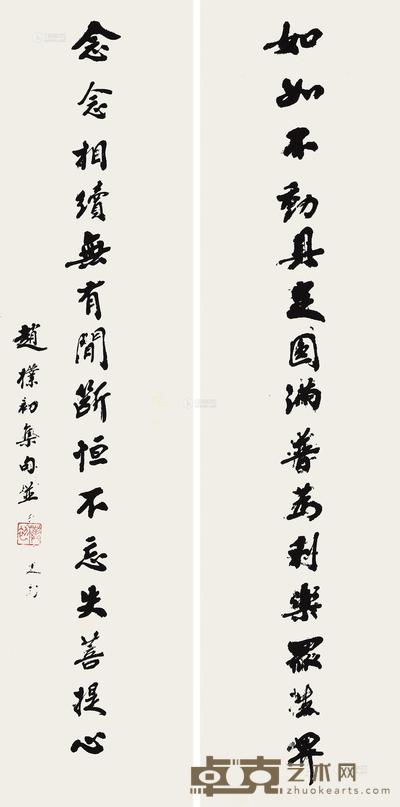 如如不動具足圓滿普為利樂眾界
念念相續無有間斷恒不忘失菩提心
趙樸初集句並
卓克艺术网
zhuokearts.com